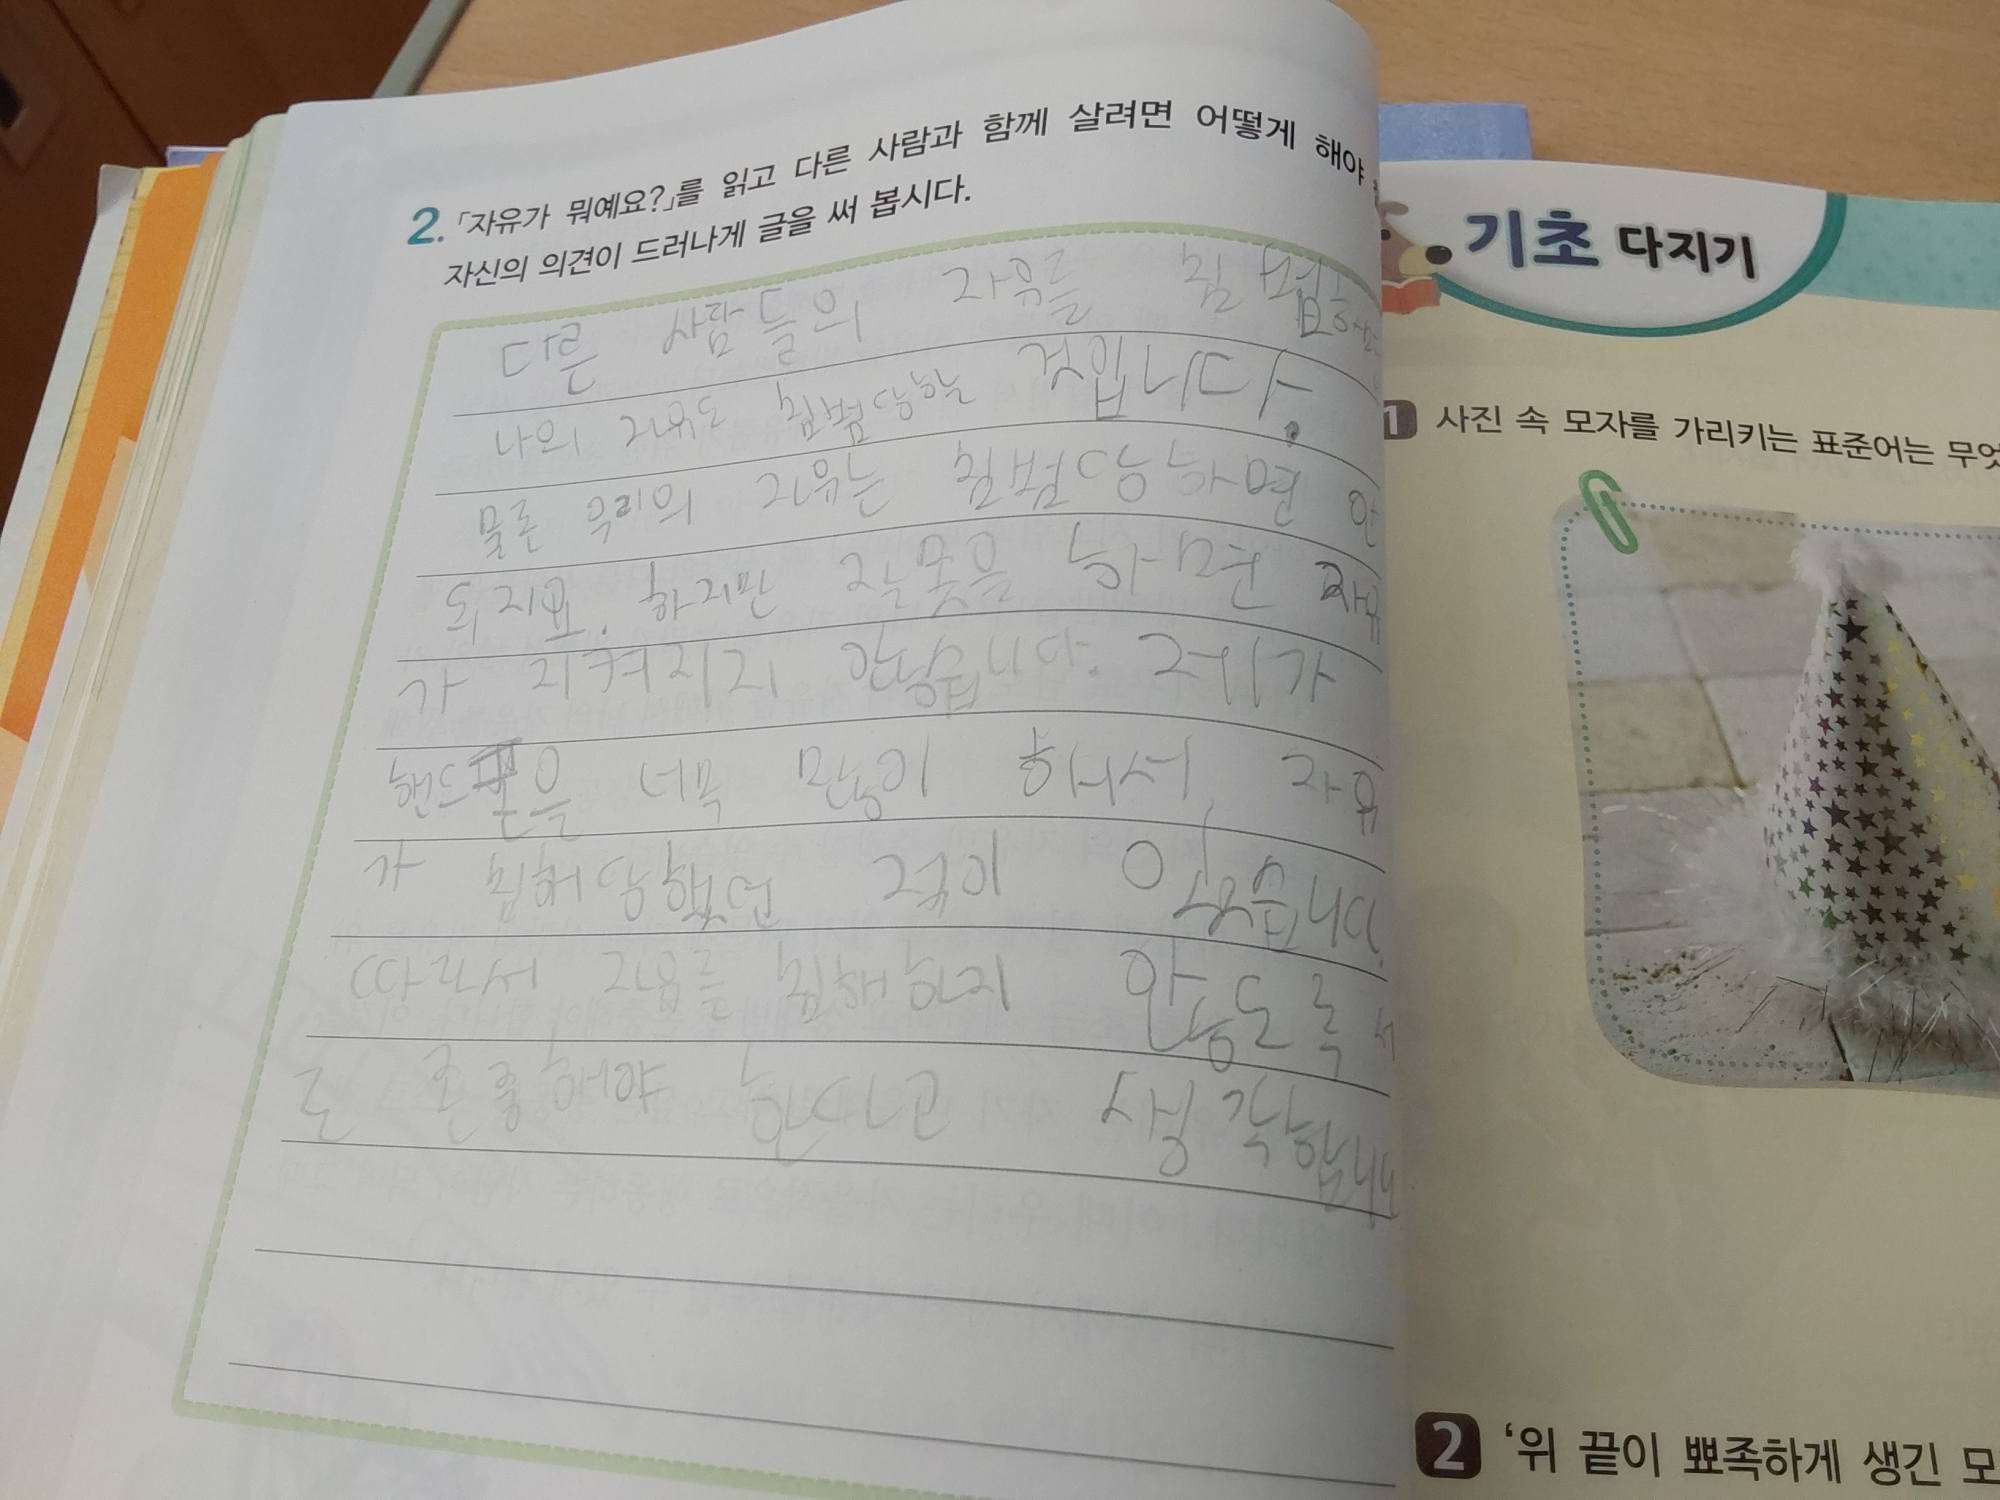 2. 「자유가 뭐예요?」를 읽고 다른 사람과 함께 살려면 어떻게 해야
자신의 의견이 드러나게 글을 써 봅시다.
다른 사람들의 자유를 침범하
나의 자유도 침범당할 것입니다.
물론 우리의 자유는 침범당하면 안
되지요. 하지만 잘못을 하면 자유
가 지켜지지 않습니다. 제가
핸드폰을 너무 많이 해서, 자유
가 침해당했던 적이 있습니다.
따라서 자유를 침해하지 않도록 서
로 존중해야 한다고 생각합니다
기초 다지기
1 사진 속 모자를 가리키는 표준어는 무엇
2 ‘위 끝이 뾰족하게 생긴 모